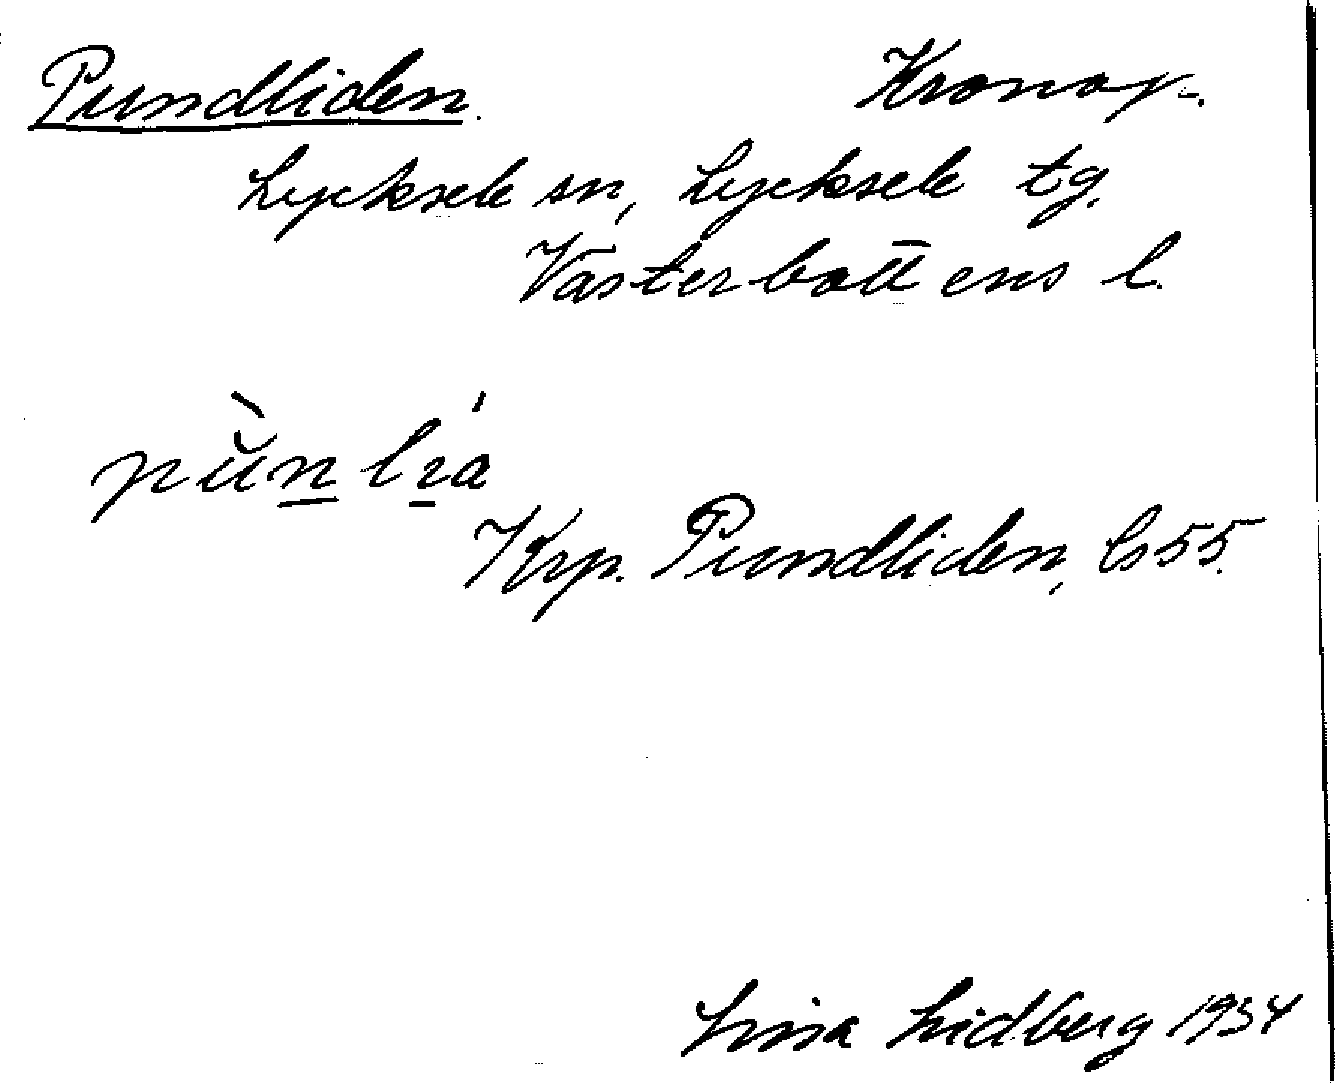 Pundliden. Kronop.
Lycksele sn, Lycksele tg.
Västerbottens l.
Krp. Pundliden, Gs 55.
Lisa Lidberg 1934